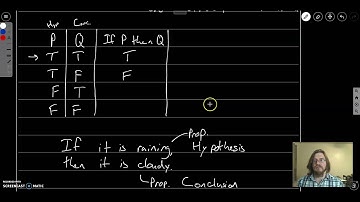 Hyp Conc
P Q If P then Q
→ T T T
T F F
F T
F F
Prop.
If it is raining, Hypothesis
then it is cloudy.
Prop. Conclusion
SCREENCAST-O-MATIC